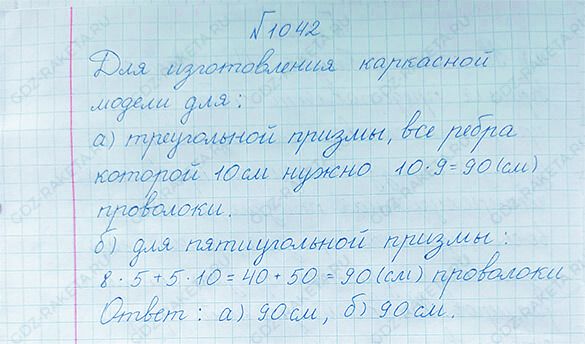 №1042
Для изготовления каркасной
модели для:
а) треугольной призмы, все ребра
которой 10 см нужно 10·9=90(см)
проволоки.
б) для пятиугольной призмы:
8·5+5·10=40+50=90(см) проволоки
Ответ: а) 90см, б) 90см.
GDZ-RAKETA.RU